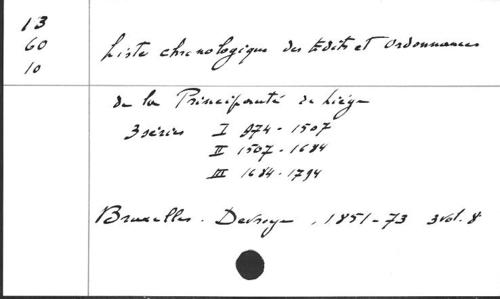 13
60
10
Liste chronologique des Edits et Ordonnances
de la Principauté de Liége
3 séries I 974 - 1507
II 1507 - 1684
III 1684 - 1794
Bruxelles. Devroye, 1851-73 3 vol. 8